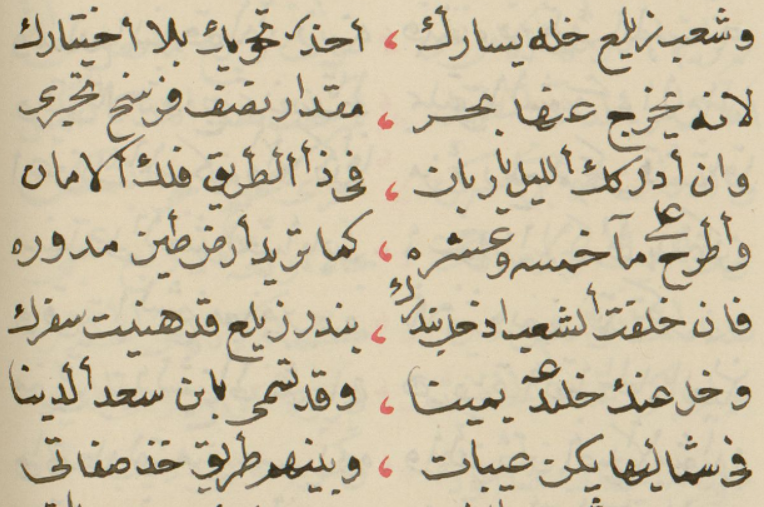 وشعب زيلع خله يسارك ، أحذر تحويك بلا أختيارك
لانه يخرج عنها بحر ، مقدار نصف فرسخ تجري
وان أدركك أليل ياربان ، في ذا ألطريق فلك ألامان
وأطرح على ما خمسه وعشره ، كما تريد أرض طين مدوره
فان خلفت ألشعب ادخل بندرك ، بندر زيلع قد هنيت سفرك
وخل عنك يمينا ، وقد تسمى بابن سعد ألدينا
في شماليها يكن عيبات ، وبينهم طريق خذ صفاتي